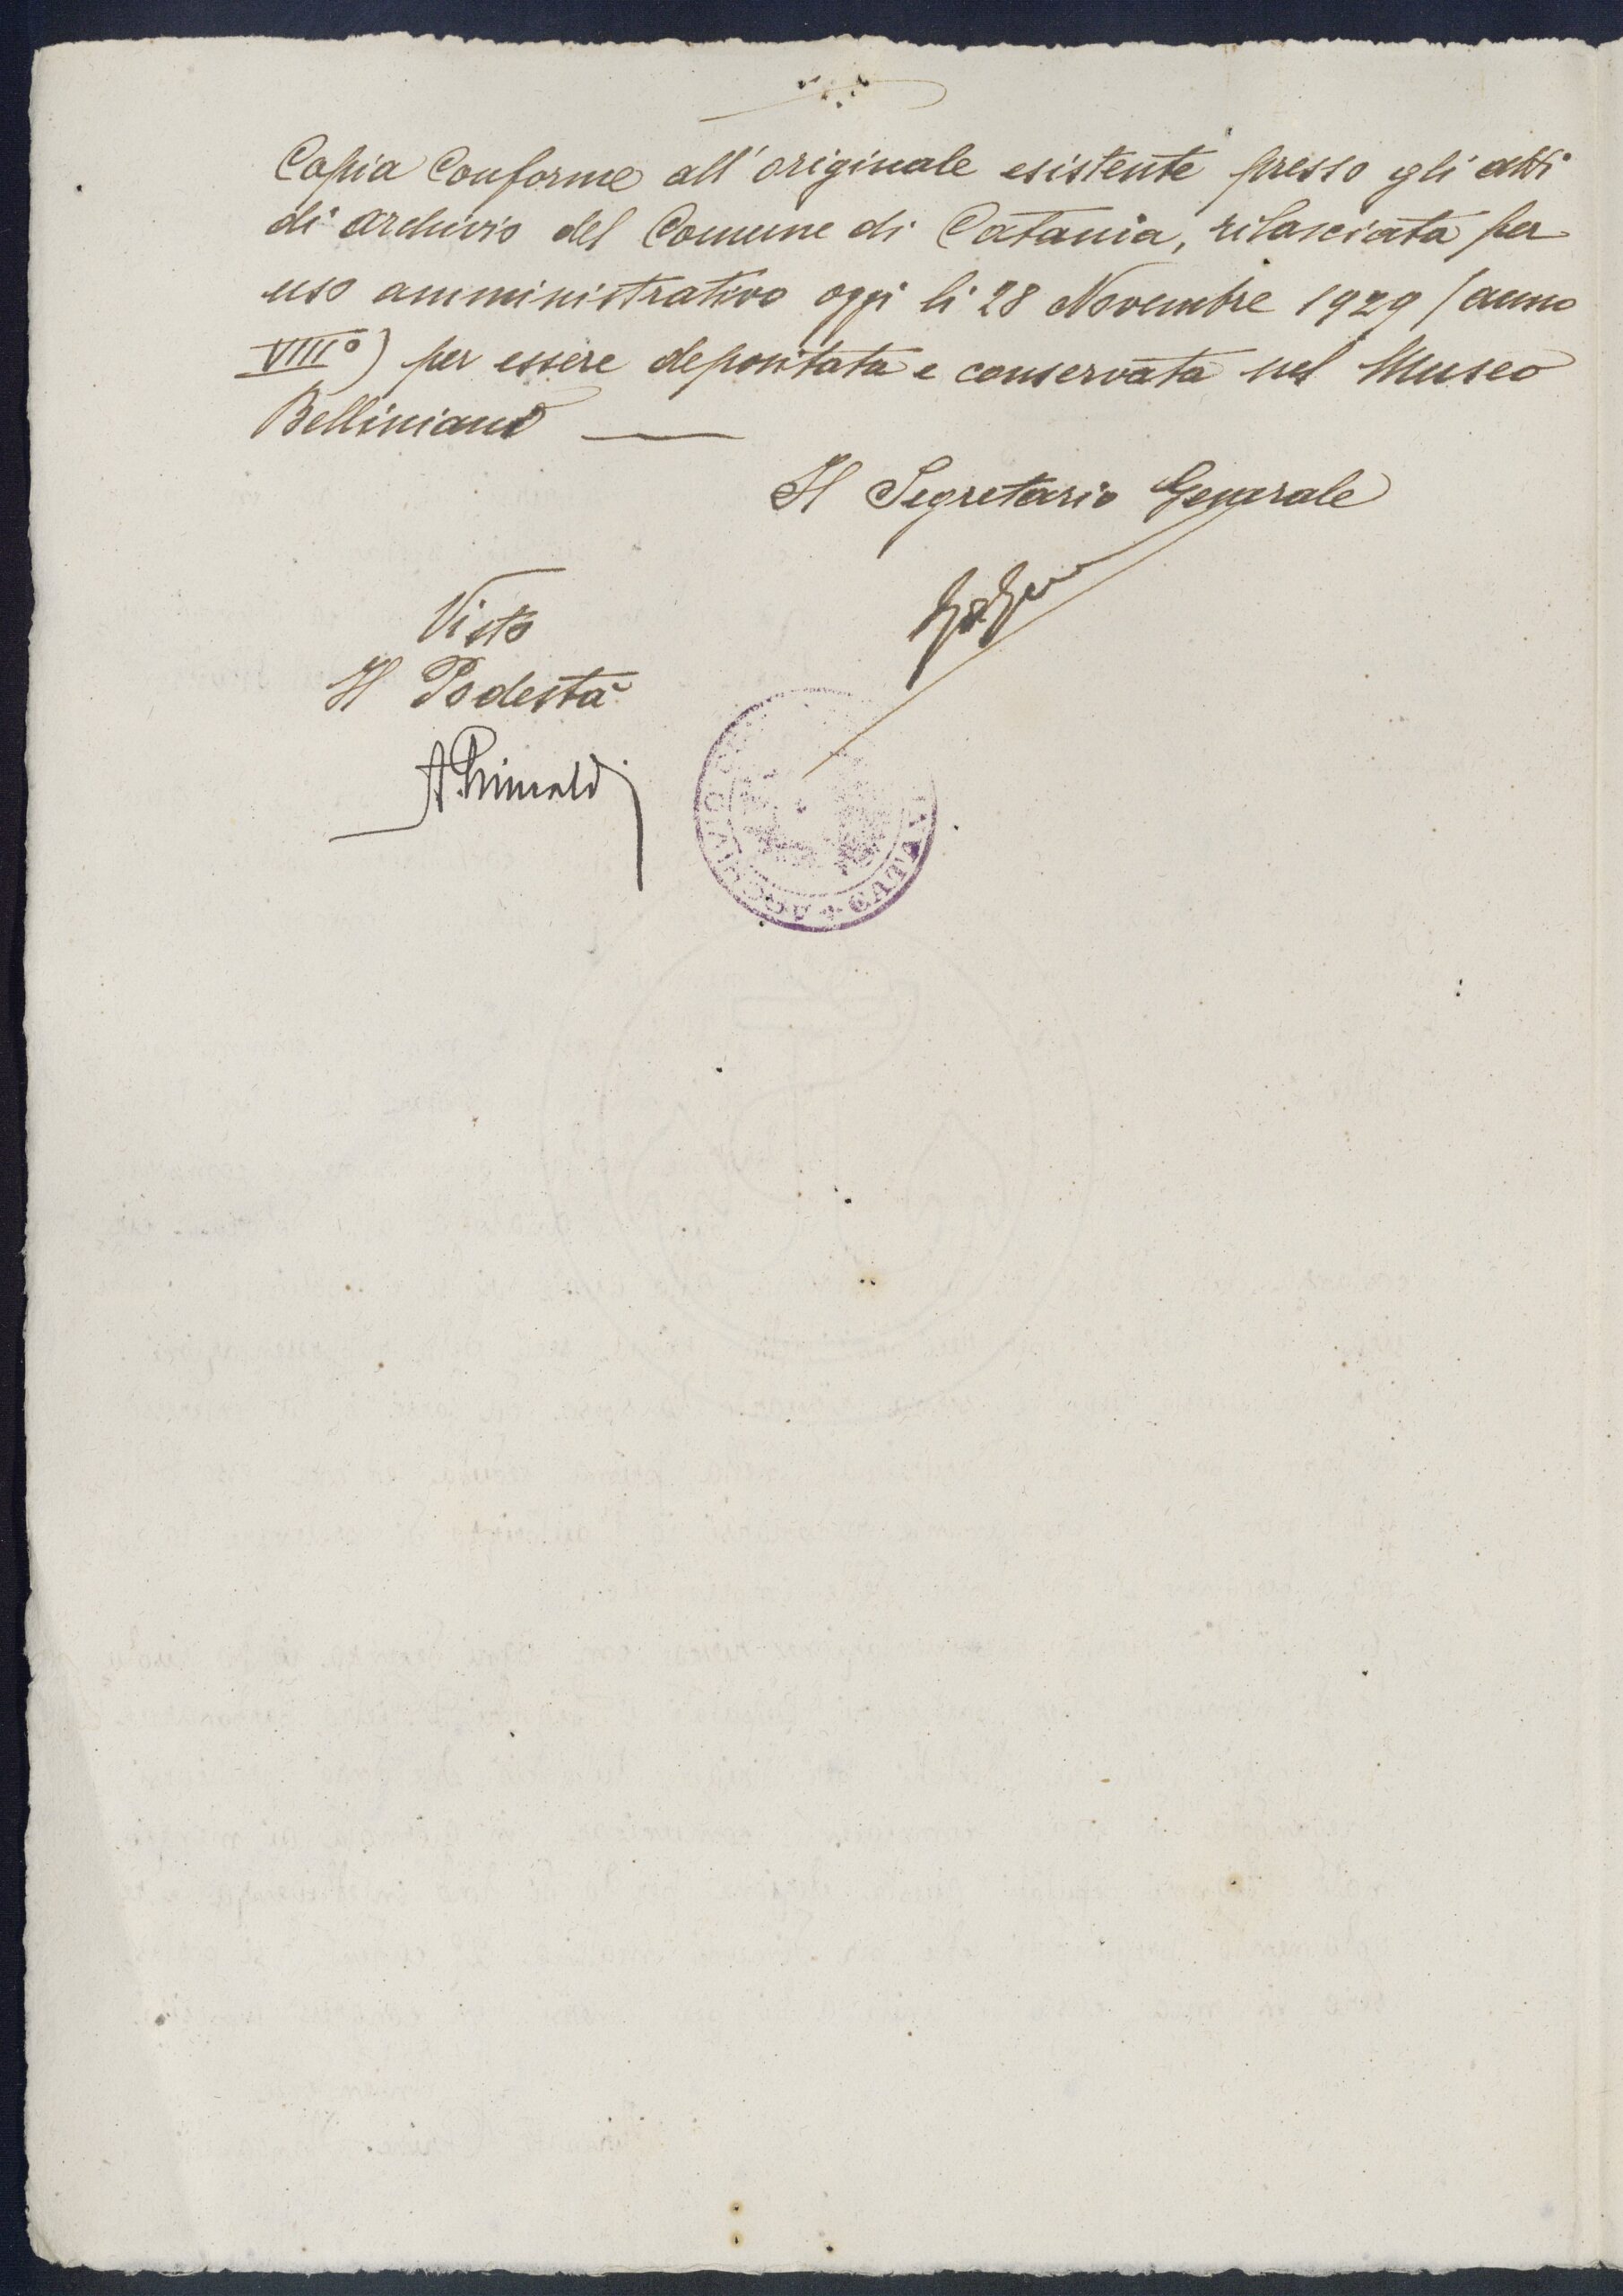 Copia Conforme all'originale esistente presso gli atti
di archivio del Comune di Catania, rilasciata per
uso amministrativo oggi li 28 Novembre 1929 (anno
VIII°) per essere depositata e conservata nel Museo
Belliniano
Il Segretario Generale
Visto
Il Podestà